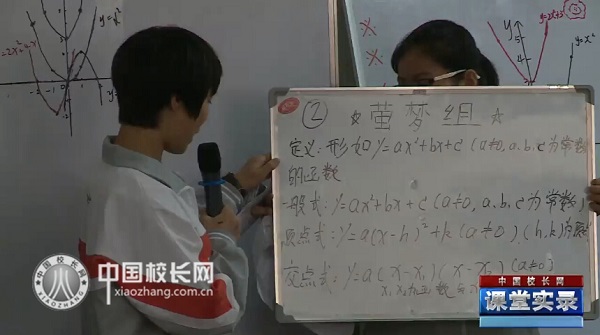 y=x²
② ☆萤梦组☆
定义:形如 y=ax²+bx+c (a≠0, a.b.c为常数)
的函数
一般式:y=ax²+bx+c (a≠0, a.b.c为常数)
y=a(x-h)²+k (a≠0) (h,k)为
交点式:y=a(x-x₁)(x-x₂)(a≠0)
y=x²
中国校长网
xiaozhang.com.cn
中国校长网
课堂实录